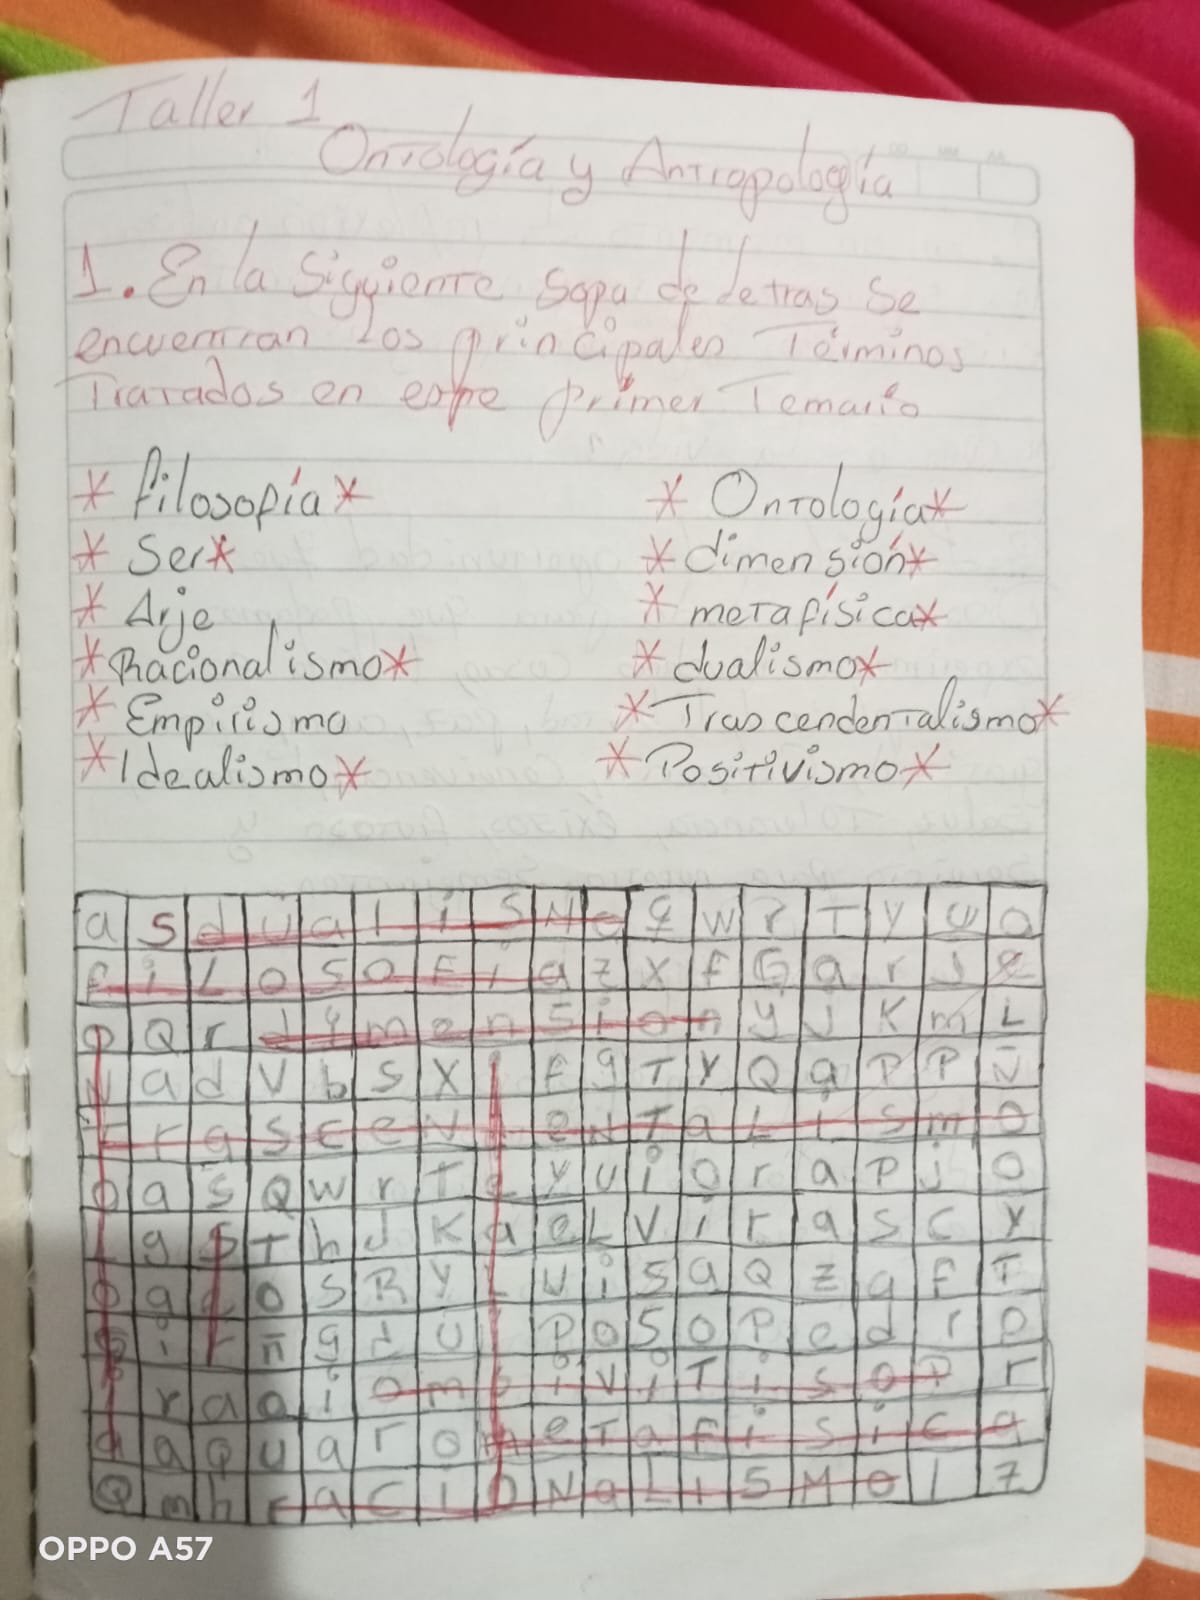 Taller 1
Ontología y Antropología
1. En la Siguiente Sopa de letras Se
encuentran los principales Términos
Tratados en este primer Temario
* filosofía * * Ontología *
* Ser * * dimensión *
* Arje * metafísica *
* Racionalismo * * dualismo *
* Empirismo * Trascendentalismo *
* Idealismo * * Positivismo *
a s d u a l i s M o q w r T y u o
f i L o s o F i a z x f G a r J e
o Q r d i m e n s i o n y j K m L
N a d v b s x i f g T y Q a P P
T r a s c e N d e N T a L i s m o
o a s Q w r T e y u i o r a P j o
L g s T h J K a e L v i r a s c y
o a e o s R y L u i s a Q z a f T
g i r ñ g d U i P o s o P e d r o
i r a o i o m s i v i T i s o P r
a a q u a r o m e T a f i s i c a
Q m h r a C i O N a L i S M o l z
OPPO A57